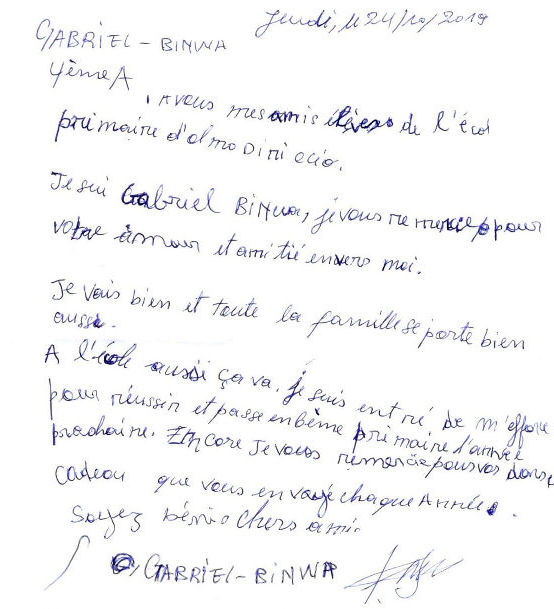 Jeudi, le 24/10/2019
GABRIEL - BINWA
4ème A
, A vous mes amis élèves de l'écol
primaire d'olmo Dini ecio.
Je sui Gabriel BINWA, je vous remercie pour
votre amour et amitié envers moi.
Je vais bien et toute la famille se porte bien
aussi.
A l'école aussi ça va. je suis entré de m'efforce
pour réussir et passe en 6ème primaire l'année
prochaine. Encore Je vous remercie pour vos dons et
cadeau que vous envoyé chaque Année.
Soyez béni chers ami.
GABRIEL - BINWA